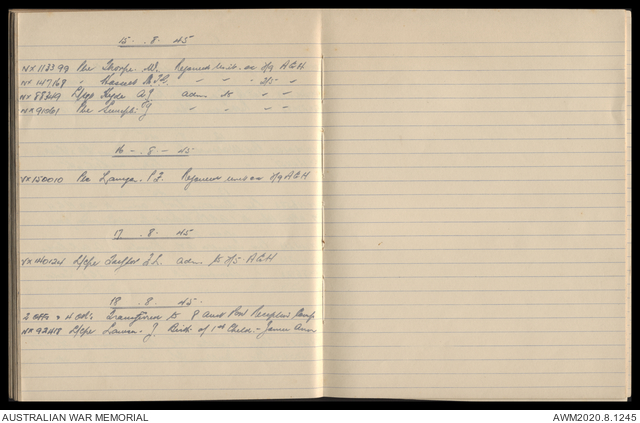 15 . 8 . 45
NX 113399 Pte Thorpe. W. Rejoined Unit. ex 2/9 AGH
NX 147168 " M. " " " "
NX 88249 L/Cpl Hyde A J adm. to " "
NX 91061 Pte J " " "
16 - . 8 - 45
VX 150010 Pte P. J. Rejoined unit ex 2/9 AGH
17 . 8 . 45
VX 140124 L/Cpl J. L. adm. to 2/5 AGH
18 . 8 . 45.
2 Offs & 4 ORs Transferred to 8 Aust Camp
NX 92418 L/Cpl J. Birth of 1st Child - Ann
AUSTRALIAN WAR MEMORIAL
AWM2020.8.1245